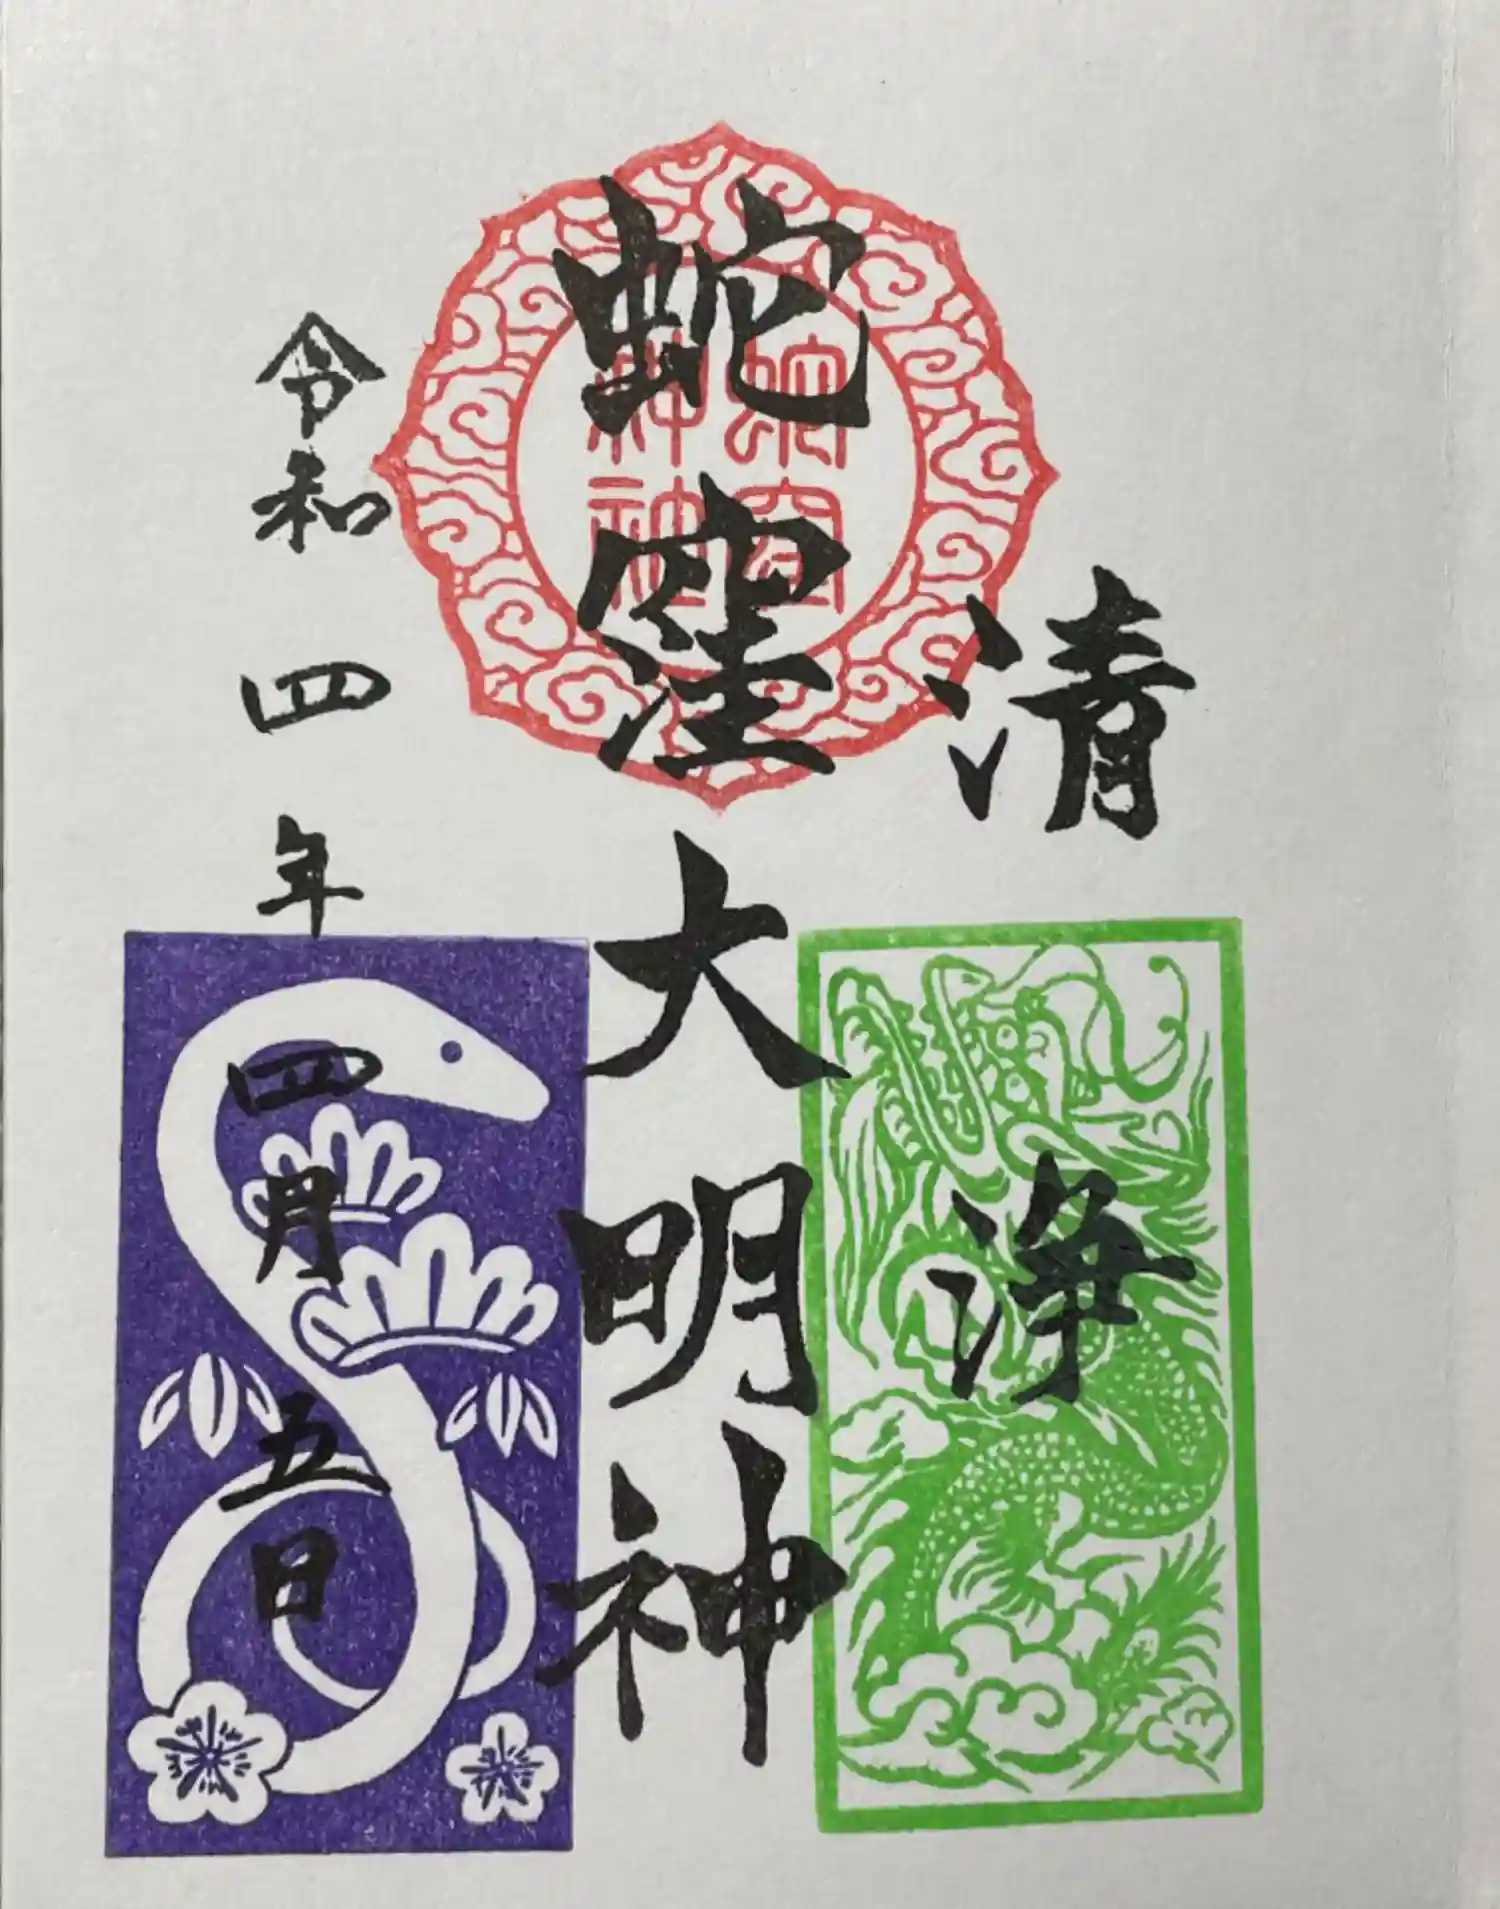 清浄
蛇窪大明神
蛇窪
神社
令和四年四月五日